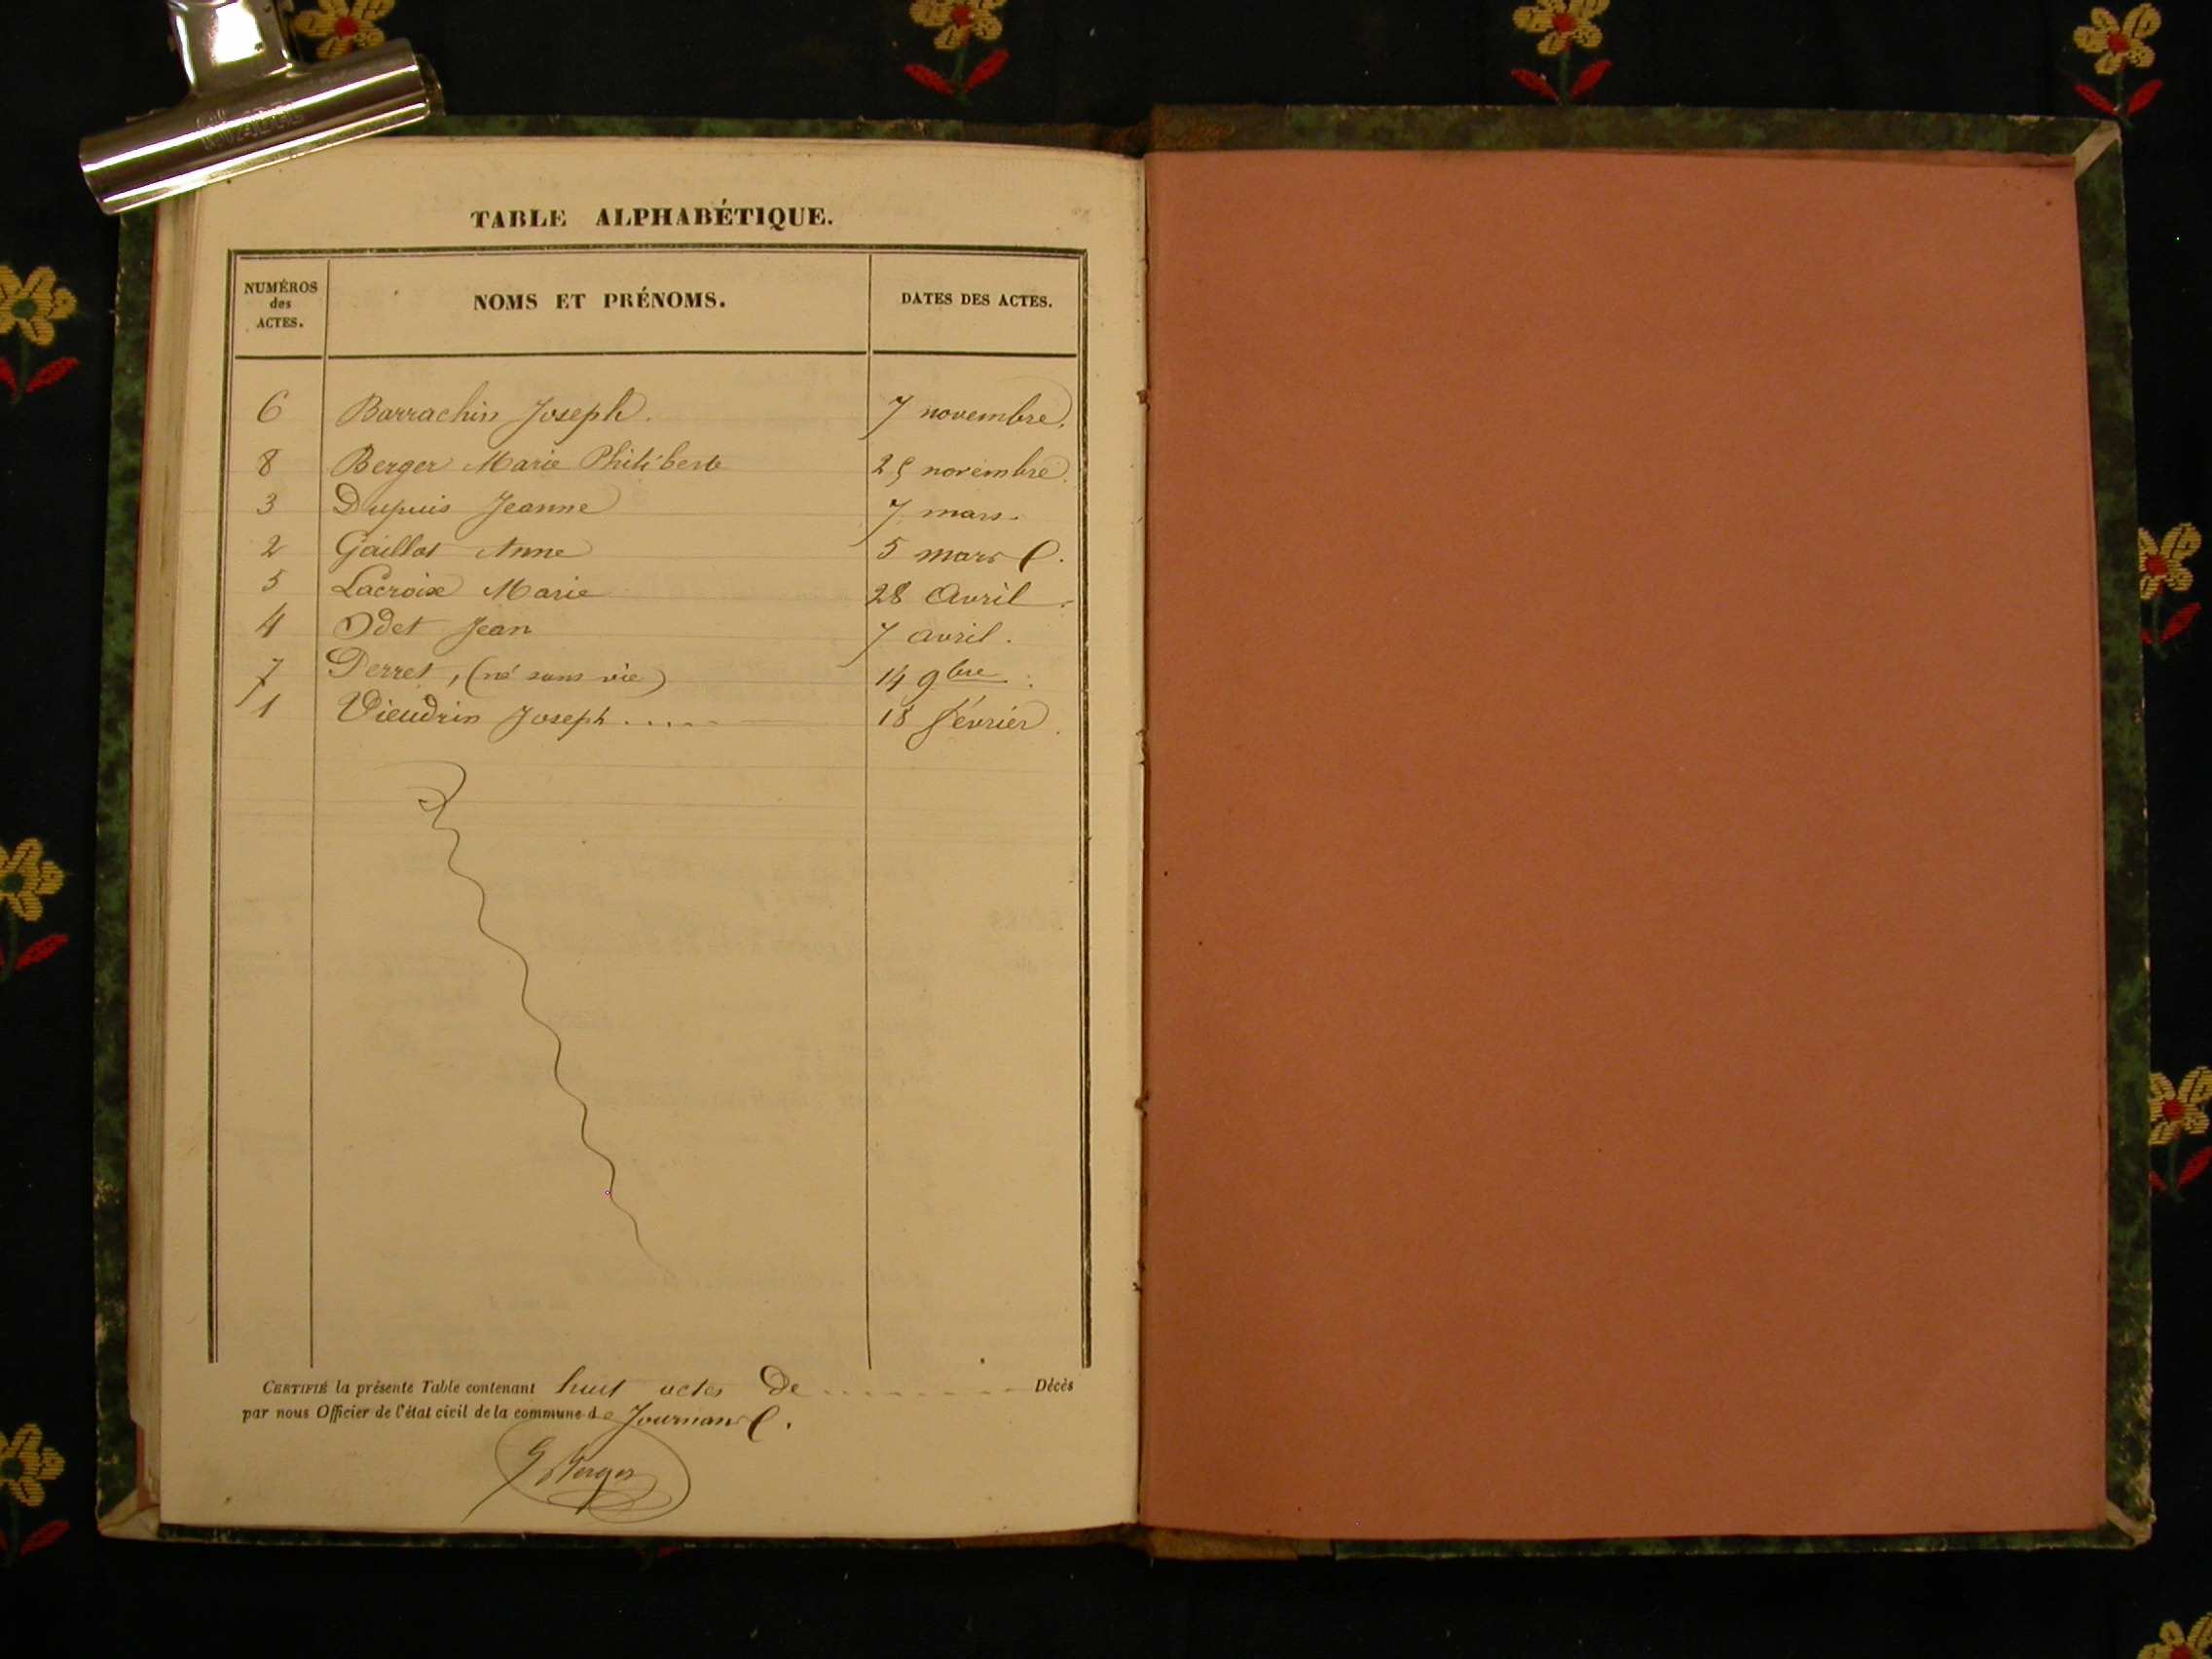 TABLE ALPHABÉTIQUE.
NUMÉROS des ACTES. NOMS ET PRÉNOMS. DATES DES ACTES.
6 Barrachin Joseph. 7 novembre.
8 Berger Marie Philiberte 25 novembre.
3 Dupuis Jeanne 7 mars.
2 Gaillot Anne 5 mars
5 Lacroix Marie 28 Avril.
4 Odet Jean 7 avril.
7 Perret, (né sans vie) 14 9bre.
1 Vieudrin Joseph ..... 18 février.
CERTIFIÉ la présente Table contenant huit actes De ........ Décès
par nous Officier de l'état civil de la commune de Journans.
Berger